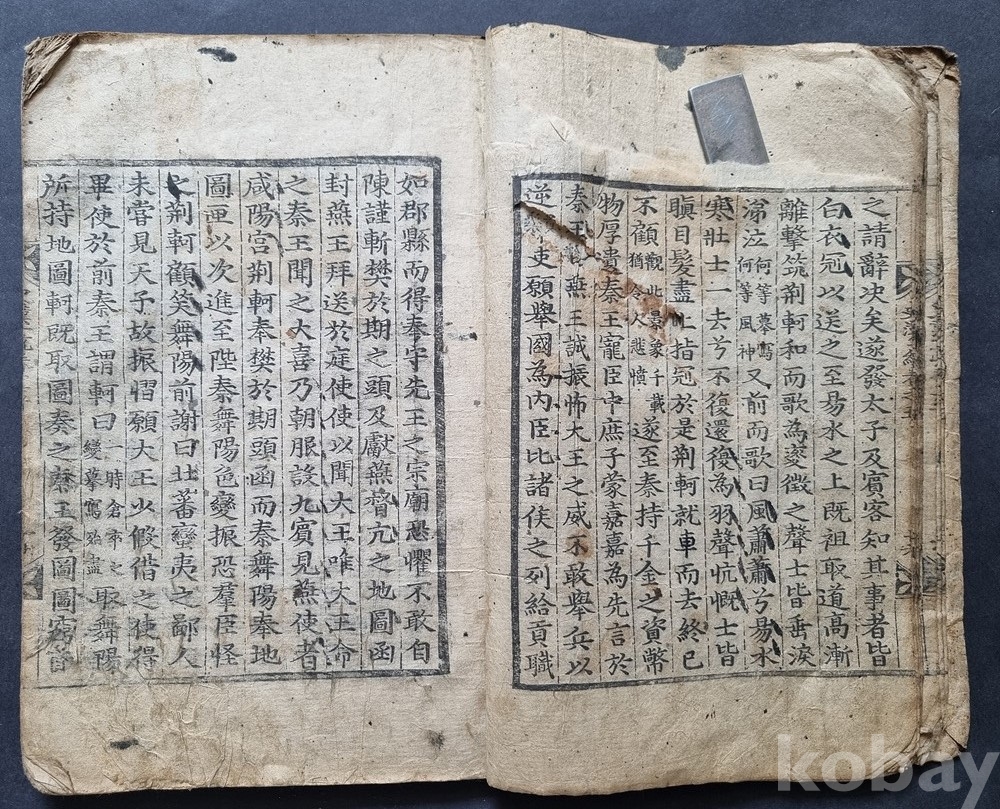 之請辭决矣遂發太子及賓客知其事者皆
白衣冠以送之至易水之上既祖取道高漸
離擊筑荊軻和而歌為變徵之聲士皆垂淚
涕泣何等摹寫何等風神又前而歌曰風蕭蕭兮易水
寒壯士一去兮不復還復為羽聲忼慨士皆
瞋目髮盡上指冠於是荊軻就車而去終已
不顧觀此景象千載猶令人悲憤遂至秦持千金之資幣
物厚遺秦王寵臣中庶子蒙嘉嘉為先言於
秦王燕王誠振怖大王之威不敢舉兵以
逆吏願舉國為內臣比諸侯之列給貢職
如郡縣而得奉守先王之宗廟恐懼不敢自
陳謹斬樊於期之頭及獻燕督亢之地圖函
封燕王拜送於庭使使以聞大王唯大王命
之秦王聞之大喜乃朝服設九賓見燕使者
咸陽宮荊軻奉樊於期頭函而秦舞陽奉地
圖匣以次進至陛秦舞陽色變振恐羣臣怪
之荊軻顧笑舞陽前謝曰北蕃蠻夷之鄙人
未嘗見天子故振慴願大王少假借之使得
畢使於前秦王謂軻曰一時倉卒之變摹寫殆盡取舞陽
所持地圖軻既取圖奏之秦王發圖圖窮首
kobay